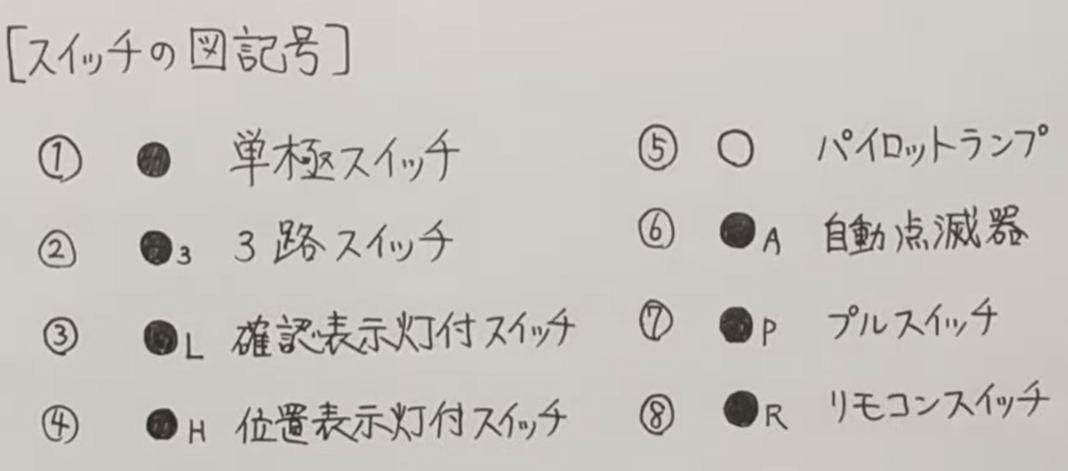 [スイッチの図記号]
① ● 単極スイッチ
② ●3 3路スイッチ
③ ●L 確認表示灯付スイッチ
④ ●H 位置表示灯付スイッチ
⑤ ○ パイロットランプ
⑥ ●A 自動点滅器
⑦ ●P プルスイッチ
⑧ ●R リモコンスイッチ